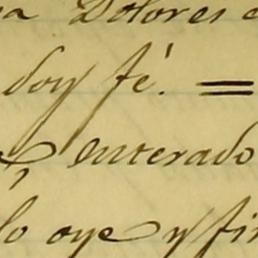 Dolores
doy fé. =
enterado
lo oye y